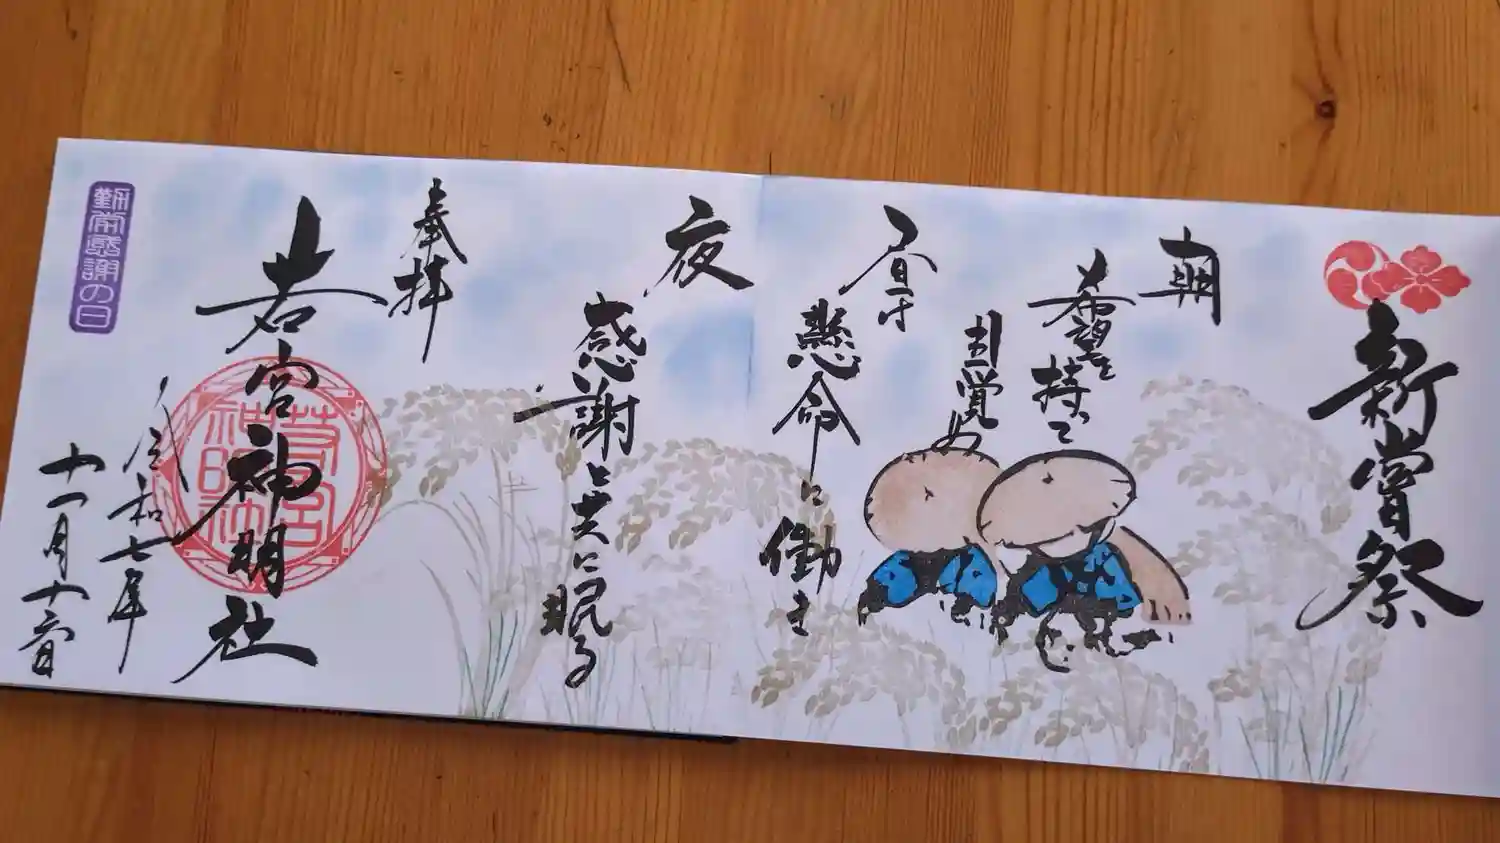 新嘗祭
朝
希望を持って
目覚め
昼は
懸命に働き
夜
感謝と共に眠る
奉拝
若宮神明社
若宮
神明社
令和七年
勤労感謝の日